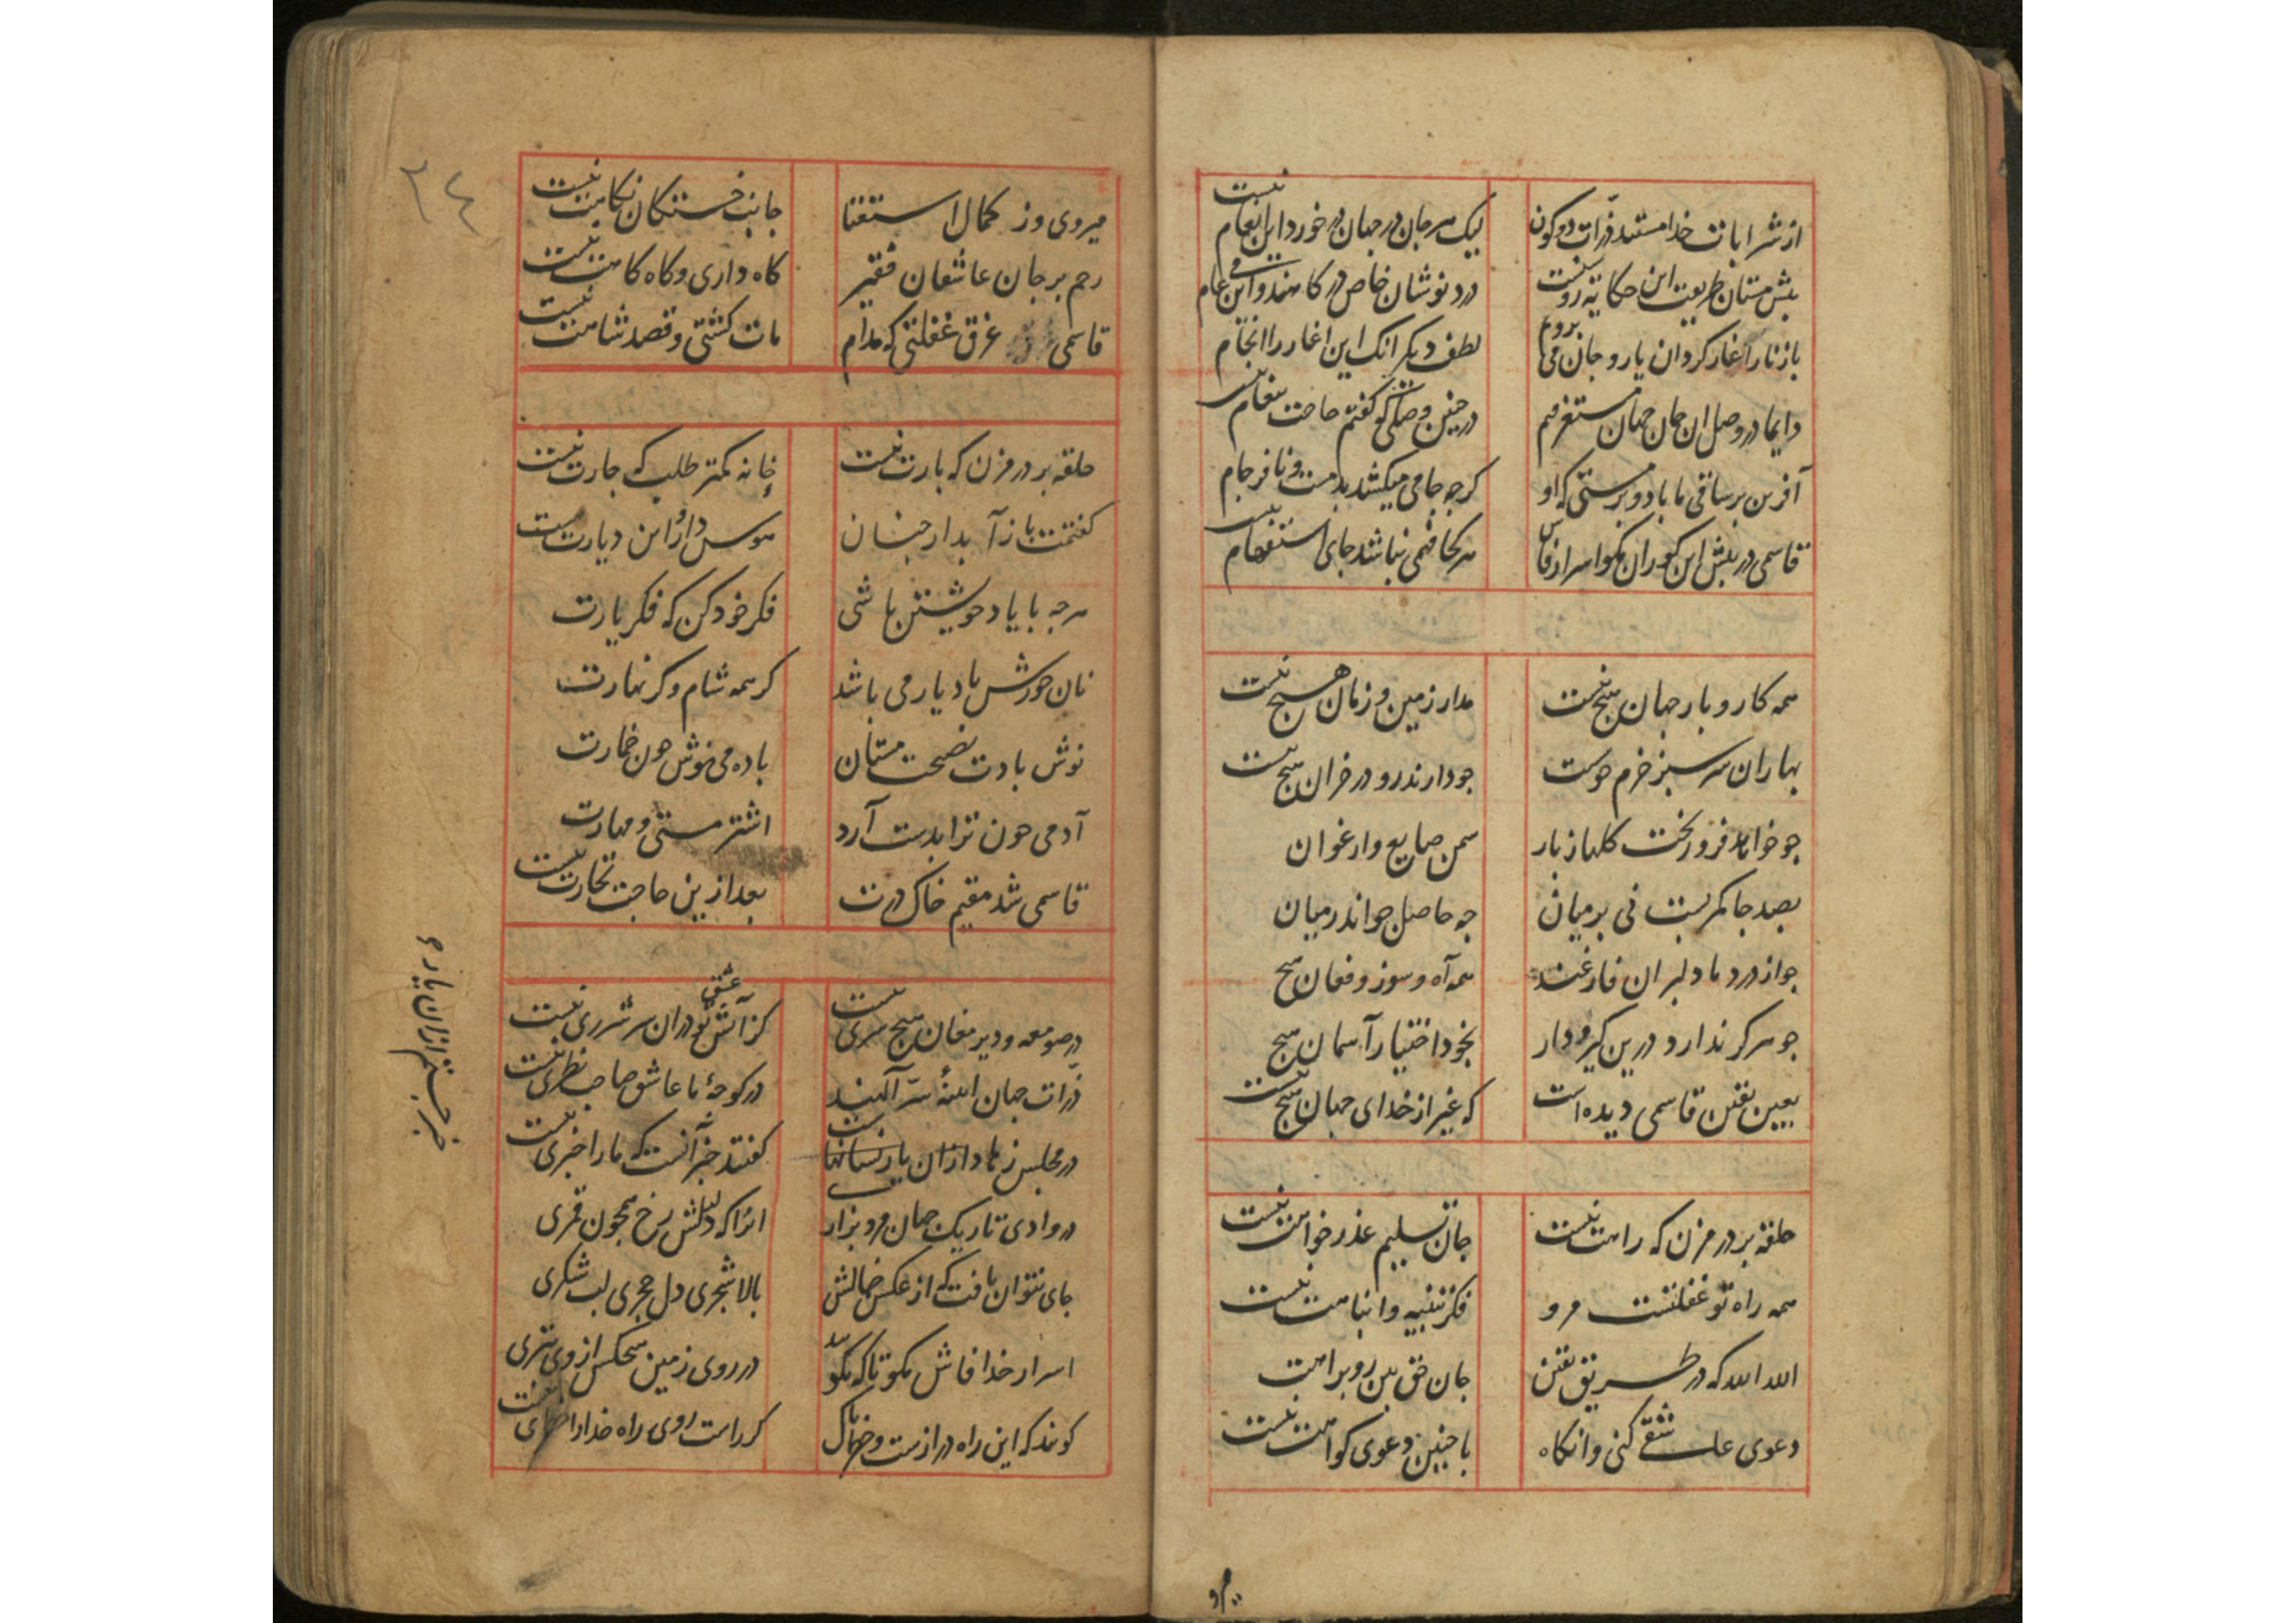 از شرابات خدا مستند ذرات دو کون لیک هر جان در جهان در خورد این انعام نیست
پیش مستان طریقت این حکایت روشنست درد نوشان خاص در کامند و این می عام
باز ما را آغاز کرد آن یار و جان می پرورم لطف دیگر آنک این اغاز را انجام
دایما در وصل ان جان جهان مستغرقیم در چنین وصلی کو کفتم حاجت پیغام نیست
آفرین بر ساقی ما باد و بر مستی که او کرچه جامی میکشد بدمست و نافرجام
قاسمی در پیش این کوران مکو اسرار فاش هر کجا فهمی نباشد جای استفهام نیست
همه کار و بار جهان هیچ نیست مدار زمین و زمان هیچ نیست
بهاران سرسبز خرم خوست چو دارند رو در خزان هیچ نیست
چو خواهد فرو ریخت کلها ز بار سمن ضایع و ارغوان
بصد جا کمر بست نی بر میان چه حاصل چو اندر میان
چو از درد ما دلبران فارغند همه آه و سوز و فغان هیچ
چو مرکز ندارد درین کیر و دار بخود اختیار آسمان هیچ
بعین یقین قاسمی دیده است که غیر از خدای جهان هیچ نیست
حلقه بر در مزن که راهت نیست جان تسلیم عذر خواهت نیست
همه راه تو غفلتست مرو فکر تنبیه و انتباهت نیست
الله الله که در طریق یقین جان حق بین رو براهت
دعوی عاشقی کنی وانکاه با چنین دعوی کواهت نیست
میروی
۳۴
میروی وز کمال استغنا جانب خستکان نکاهت نیست
رحم بر جان عاشقان فقیر کاه داری و کاه کاهت نیست
قاسمی غرق غفلتی که مدام مات کشتی و قصد شاهت نیست
حلقه بر در مزن که بارت نیست خانه کمتر طلب که جارت نیست
کفتمت باز آ بدار جنان هوس دار و این دیارت نیست
هرچه با یاد خویشتن باشی فکر خود کن که فکر یارت
نان خورش یاد یار می باشد کر همه شام و کر نهارت
نوش بادت نصیحت مستان باده می نوش چون خمارت
آدمی چون ترا بدست آرد اشتر مستی و مهارت
قاسمی شد مقیم خاک درت بعد ازین حاجت تجارت نیست
در صومعه و دیر مغان هیچ سری نیست کز آتش عشق تو در آن سر شرری نیست
ذرات جهان آینهٔ سر آلهند در کوچهٔ ما عاشق صاحب نظری نیست
در مجلس زهاد ازان یار کفتند خبر آنست که ما را خبری نیست
در وادی تاریک جهان مرد بزارد آنرا که دلیلش رخ همچون قمری
جای نتوان یافت که از عکس جمالش بالا شجری دل حجری لب شکری
اسرار خدا فاش مکو تا که نکویند در روی زمین هیچکس از وی بتری
کویند که این راه درازست و خطرناک کر راست روی راه خدا را خطری نیست
خبر جستم ازان یار و